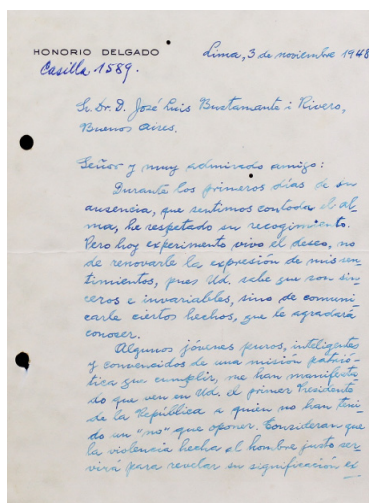 HONORIO DELGADO
Casilla 1589.
Lima, 3 de noviembre 1948
Sr. Dr. D. José Luis Bustamante i Rivero,
Buenos Aires.
Señor y muy admirado amigo:
Durante los primeros días de su
ausencia, que sentimos con toda el al-
ma, he respetado su recogimiento.
Pero hoy experimento vivo el deseo, no
de renovarle la expresión de mis sen-
timientos, pues Ud. sabe que son sin-
ceros e invariables, sino de comuni-
carle ciertos hechos, que le agradará
conocer.
Algunos jóvenes puros, inteligentes
y convencidos de una misión patrió-
tica que cumplir, me han manifesta-
do que ven en Ud. el primer Presidente
de la República a quien no han teni-
do un "no" que oponer. Consideran que
la violencia hecha al hombre justo ser-
virá para revelar su significación es-